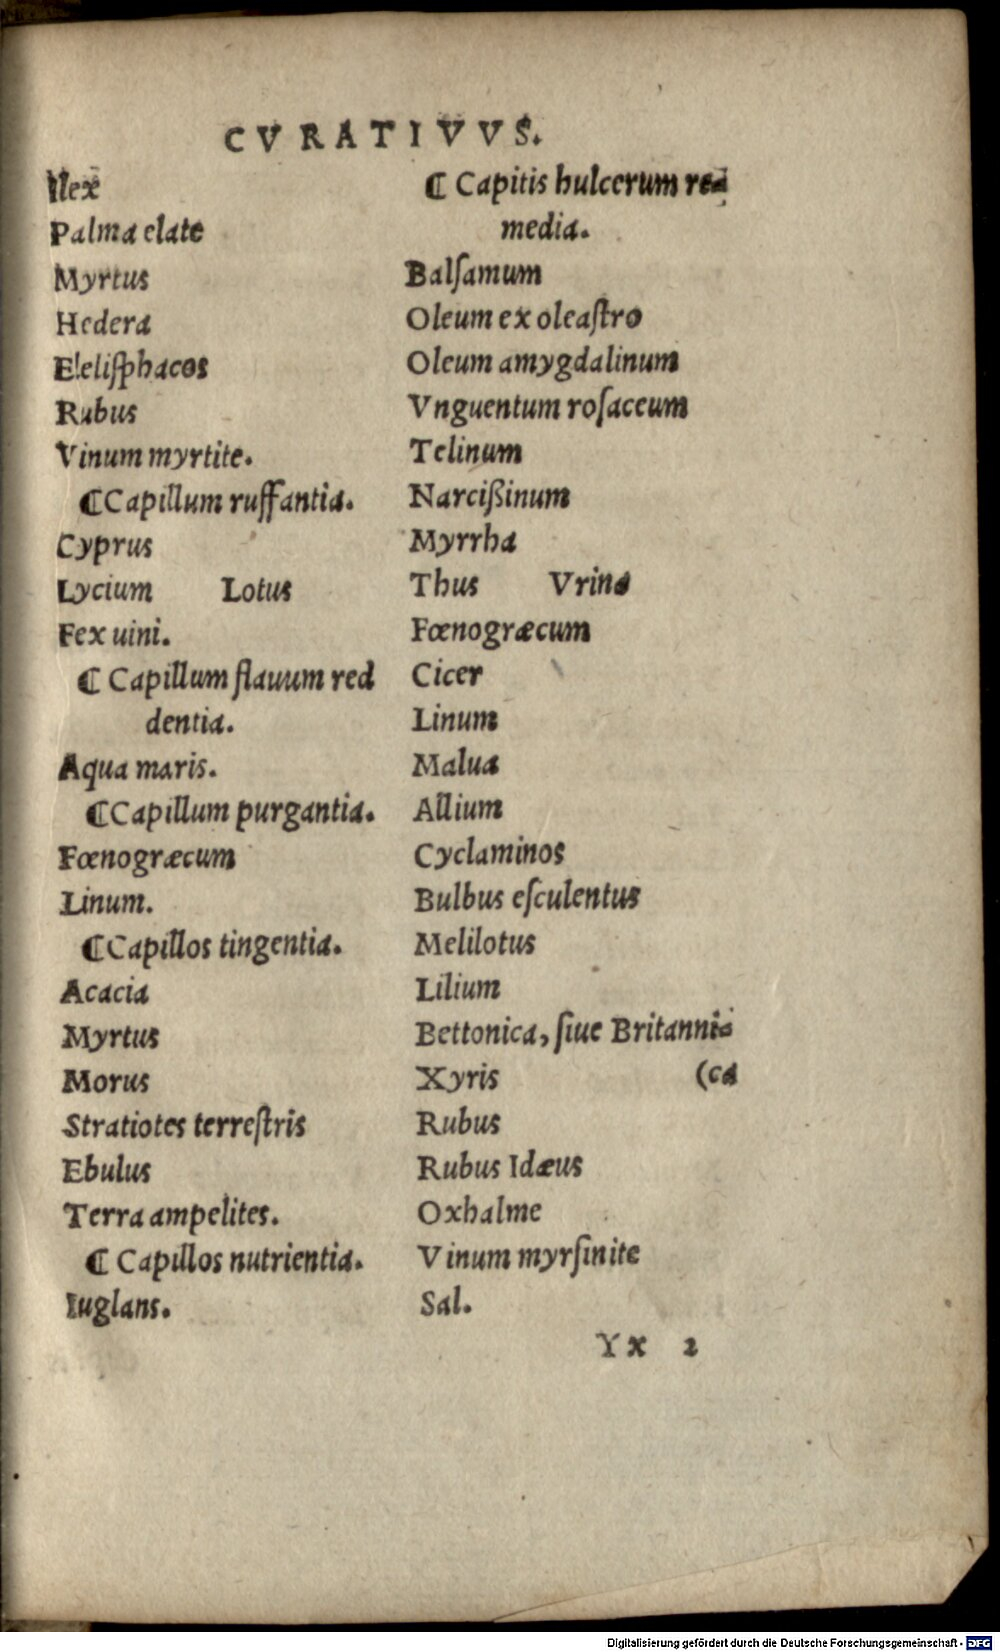 CVRATIVVS.
Ilex
Palma elate
Myrtus
Hedera
Elelisphacos
Rubus
Vinum myrtite.
¶Capillum ruffantia.
Cyprus
Lycium Lotus
Fex uini.
¶ Capillum flauum red
dentia.
Aqua maris.
¶Capillum purgantia.
Fœnogræcum
Linum.
¶Capillos tingentia.
Acacia
Myrtus
Morus
Stratiotes terrestris
Ebulus
Terra ampelites.
¶ Capillos nutrientia.
Iuglans.
¶ Capitis hulcerum re-
media.
Balsamum
Oleum ex oleastro
Oleum amygdalinum
Vnguentum rosaceum
Telinum
Narcißinum
Myrrha
Thus Vrina
Fœnogræcum
Cicer
Linum
Malua
Allium
Cyclaminos
Bulbus esculentus
Melilotus
Lilium
Bettonica, siue Britanni-
Xyris (ca
Rubus
Rubus Idæus
Oxhalme
Vinum myrsinite
Sal.
Yx 2
Digitalisierung gefördert durch die Deutsche Forschungsgemeinschaft - DFG